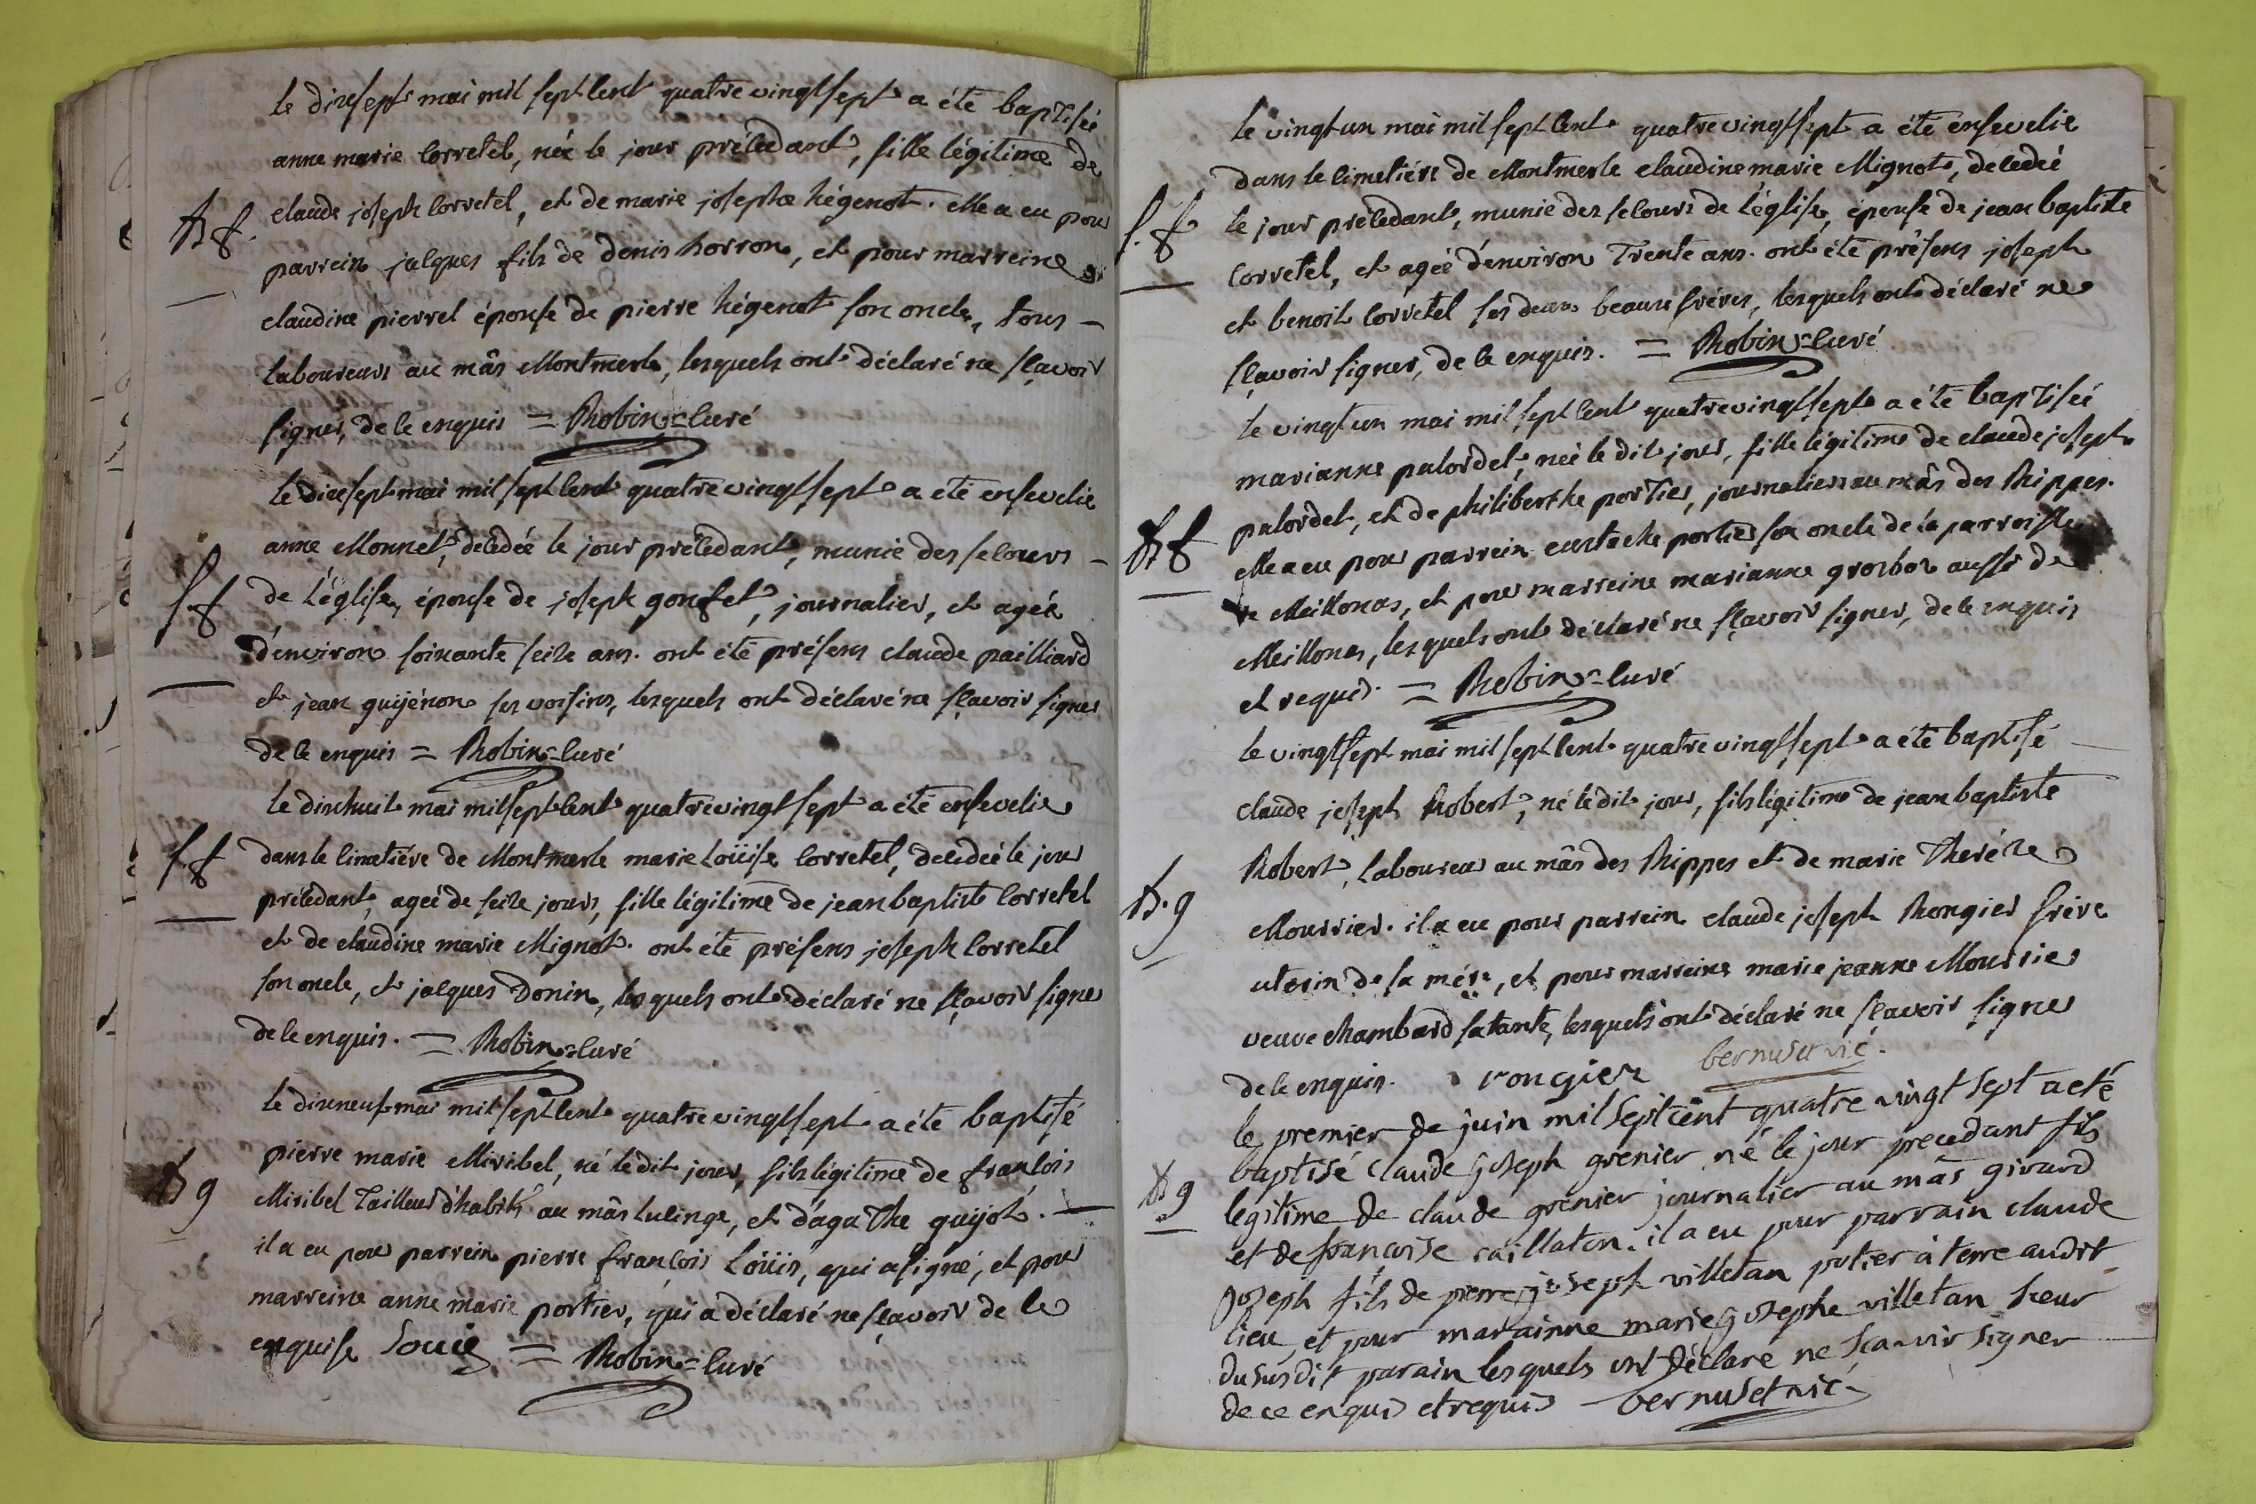 le dixsept mai mil sept cent quatre vingt sept a été baptisée
anne marie corretel, née le jour précedant, fille légitime de
B f.
claude joseph corretel, et de marie josephe hégenot. elle a eu pour
parrein jacques fils de denis horron, et pour marreine
claudine pierrel épouse de pierre hégenot son oncle, tous –
laboureurs au mâs Montmerle, lesquels ont déclaré ne sçavoir
signer, de ce enquis = Robin = curé
le dixsept mai mil sept cent quatre vingt sept a été ensevelie
anne Monnet, décédée le jour précedant, munie des secours –
S f
de l'église, épouse de joseph gonset, journalier, et agée
d'environ soixante seize ans. ont été présens claude pailliard
et jean guijénon ses voisins, lesquels ont déclaré ne sçavoir signer
de ce enquis = Robin = curé
le dixhuit mai mil sept cent quatre vingt sept a été ensevelie
S. f
dans le cimetiére de Montmerle marie Loüise corretel, décédée le jour
précedant, agée de seize jours, fille légitime de jean baptiste corretel
et de claudine marie Mignot. ont été présens joseph corretel
son oncle, et jacques Donin, lesquels ont déclaré ne sçavoir signer
de ce enquis. = Robin = curé
le dixneuf mai mil sept cent quatre vingt sept a été baptisé
pierre marie Miribel, né le dit jour, fils légitime de françois
B g
Miribel tailleur d'habits au mâs lucinge, et d'agathe guijot. –
il a eu pour parrein pierre françois Loüis, qui a signé, et pour
marreine anne marie portier, qui a déclaré ne sçavoir de ce
enquise Louis = Robin = curé
le vingt un mai mil sept cent quatre vingt sept a été ensevelie
dans le cimetiére de Montmerle claudine marie Mignot, décédée
S. f
le jour précedant, munie des secours de l'église, épouse de jean baptiste
corretel, et agée d'environ trente ans. ont été présens joseph
et benoit corretel ses deux beaux fréres, lesquels ont déclaré ne
sçavoir signer, de ce enquis. = Robin = curé
le vingt un mai mil sept cent quatre vingt sept a été baptisée
marianne pulordet, née le dit jour, fille légitime de claude joseph
pulordet, et de philiberthe portier, journaliers au mâs des Rippes.
B f
elle a eu pour parrein eustache portier son oncle de la parroisse
de Meillonas, et pour marreine marianne grosbon aussi de
Meillonas, lesquels ont déclaré ne sçavoir signer, de ce enquis
et requis. = Robin = curé
le vingt sept mai mil sept cent quatre vingt sept a été baptisé
claude joseph Robert, né le dit jour, fils légitime de jean baptiste
Robert, laboureur au mâs des Rippes et de marie Thérése
B. g
Mourrier. il a eu pour parrein claude joseph Rongier frére
uterin de sa mére, et pour marreine marie jeanne Mourrier
veuve chambard sa tante, lesquels ont déclaré ne sçavoir signer
de ce enquis. rongier bernuset vic.
le premier de juin mil sept cent quatre vingt sept a eté
baptisé claude joseph grenier né le jour precedant fils
B g
legitime de claude grenier journalier au mâs girard
et de françoise caillaton. il a eu pour parrain claude
joseph fils de pierre joseph villetan potier à terre audit
lieu, et pour marainne marie josephe villetan sœur
du susdit parain lesquels ont déclaré ne sçavoir signer
de ce enquis et requis bernuset vic.